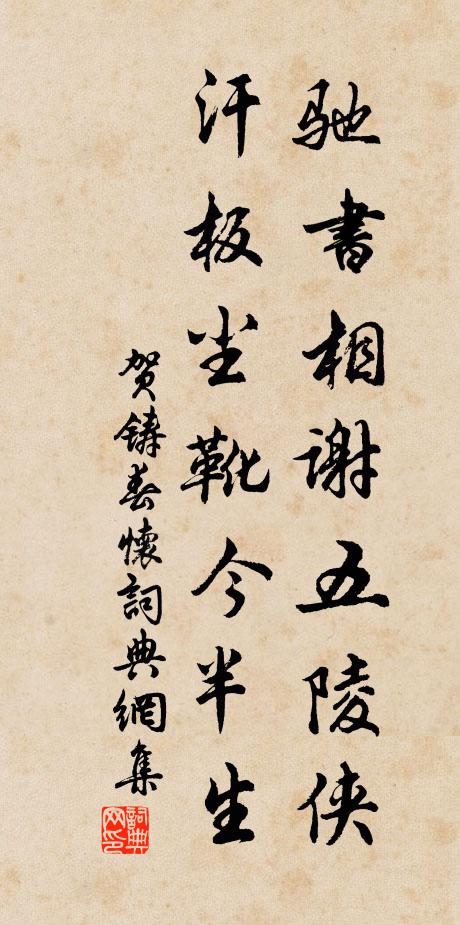 驰書相謝五陵侠
汗板尘靴今半生
贺鑄春懷詞典網集
詞典
网印